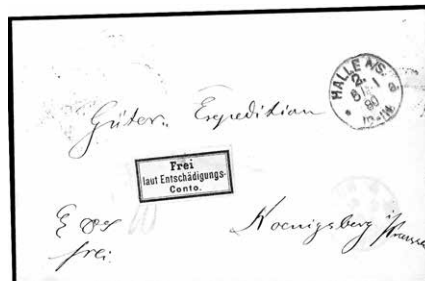 HALLE A/S.
2
8 1
90
Güter. Expedition
Frei
laut Entschädigungs-
Conto.
frei.
Koenigsberg i/Preussen